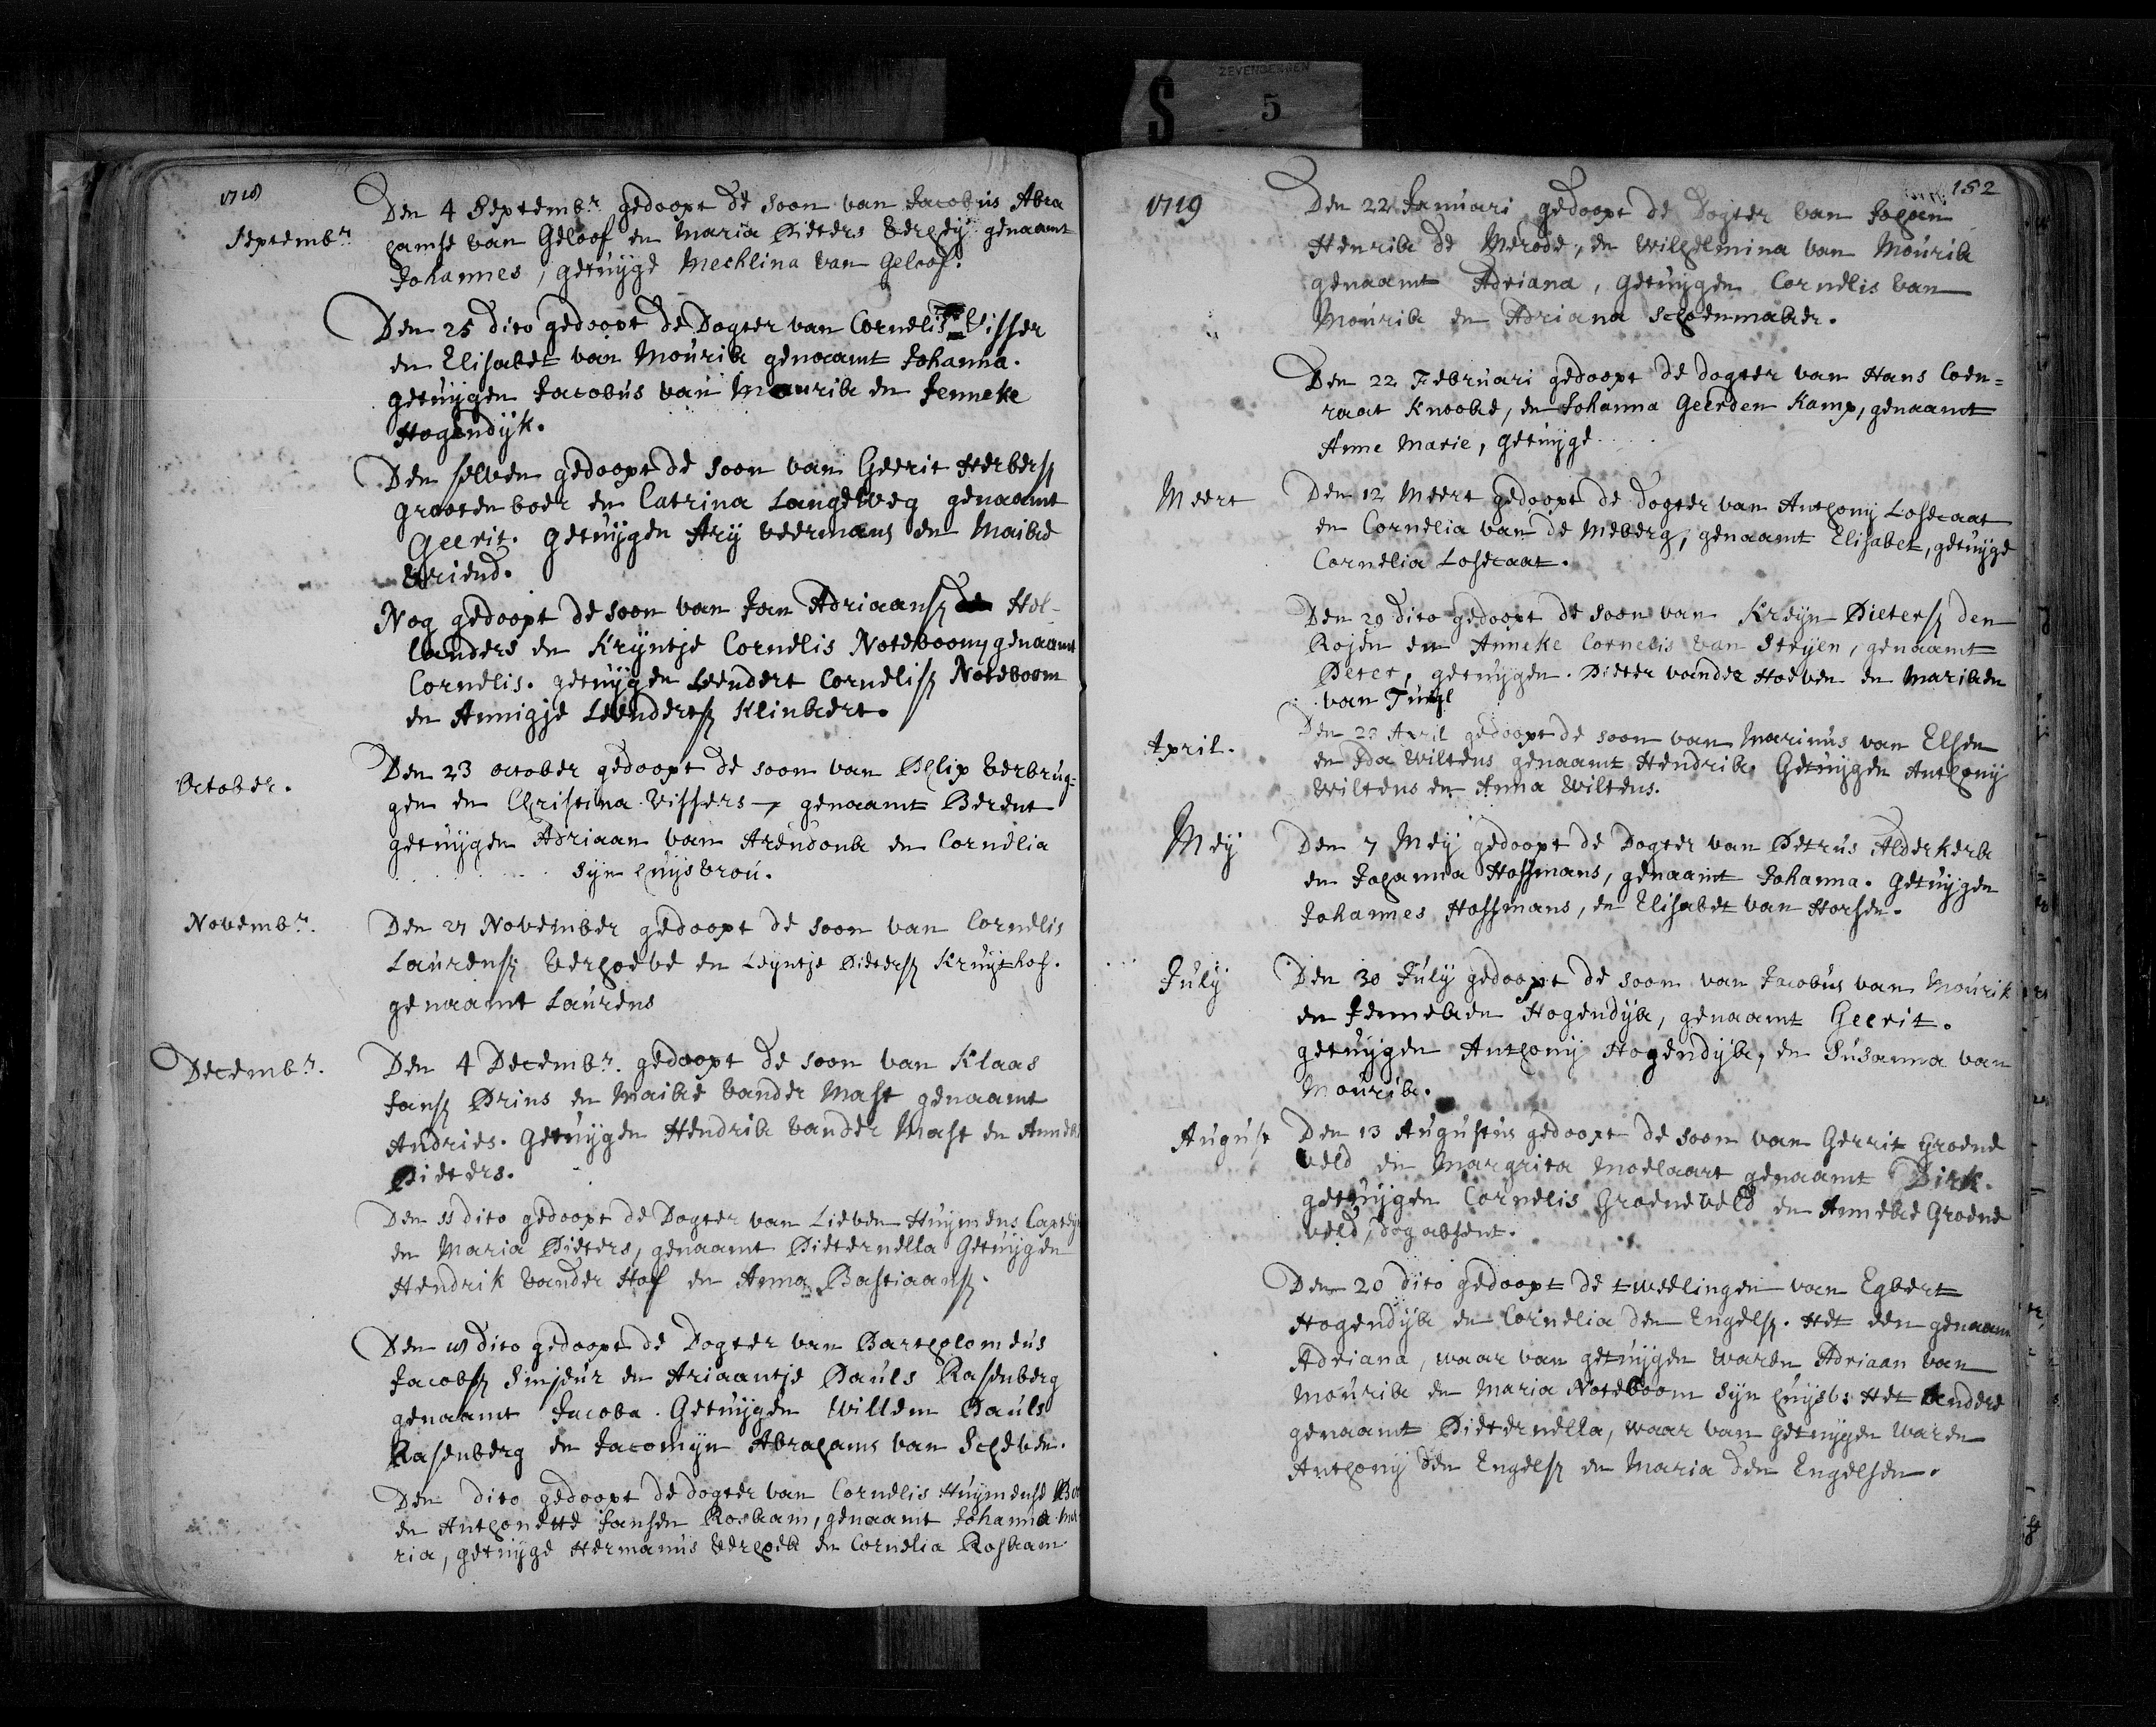 ZEVENBERGEN
S 5
1718
Septembr.
Den 4 Septembr. gedoopt de soon van Jacobus Abra
hamse van Geloof en Maria Pieters Verheij genaamt
Johannes, getuijge Mechlina van Geloof.
Den 25 dito gedoopt de Dogter van Cornelis Visser
en Elisabet van Mourik genaamt Johanna.
getuijgen Jacobus van Mourik en Jenneke
Hogendijk.
Den selven gedoopt de soon van Geerit Herbersz
grootenboer en Catrina Langeweg genaamt
Geerit. getuijgen Arij Veermans en Maike
Vriend.
Nog gedoopt de soon van Jan Adriaansz Hol-
landers en Krijntje Cornelis Noteboom genaamt
Cornelis. getuijgen Leendert Cornelisz Noteboom
en Annigje Leendertsz Klinkert.
October.
Den 23 october gedoopt de soon van Phlip Verbrug-
gen en Christina Vissers genaamt Berent
getuijgen Adriaan van Arendonk en Cornelia
Sijn huijsvrou.
Novembr.
Den 27 November gedoopt de soon van Cornelis
Laurensz Verhoeve en Leijntje Pietersz Kruijthof.
genaamt Laurens
Decembr.
Den 4 Decembr. gedoopt de soon van Klaas
Jansz Prins en Maike vander Mast genaamt
Andries. Getuijgen Hendrik vander Mast en Anneke
Pieters.
Den 11 dito gedoopt de Dogter van Lieven Huijmens Capteijn
en Maria Pieters, genaamt Pieternella Getuijgen
Hendrik vander Hof en Anna Bastiaansz.
Den 18 dito gedoopt de Dogter van Bartholomeus
Jacobsz Sinjeur en Ariaantje Pauls Rasenberg
genaamt Jacoba. Getuijgen Willem Pauls
Rasenberg en Jacomijn Abrahams van Scheven.
Den dito gedoopt de dogter van Cornelis Huijmense
en Anthonette Jansen Roskam, genaamt Johanna Ma-
ria, getuijge Hermanus Verhoek en Cornelia Roskam
152
1719
Den 22 Januari gedoopt de Dogter van Johan
Henrik de Merode, en Wilhelmina van Mourik
genaamt Adriana, getuijgen Cornelis van
Mourik en Adriana Schoenmaker.
Den 22 Februari gedoopt de dogter van Hans Coen=
raat Knooke, en Johanna Geerden Kamp, genaamt
Anne Marie, getuijge
Meert
Den 12 Meert gedoopt de dogter van Anthonij Losecaat
en Cornelia van de Meberg, genaamt Elisabet, getuijge
Cornelia Losecaat.
Den 29 dito gedoopt de soon van Kreijn Pietersz den
Rojen en Anneke Cornelis van Strijen, genaamt
Peter, getuijgen. Pieter vander Hoeven en Mariken
van Tungl
April.
Den 23 April gedoopt de soon van Marinus van Elsen
en Eda Wiltens genaamt Hendrik. Getuijgen Anthonij
Wiltens en Anna Wiltens.
Meij
Den 7 Meij gedoopt de Dogter van Petrus Alderkerk
en Johanna Hoffmans, genaamt Johanna. Getuijgen
Johannes Hoffmans, en Elisabet van Horsen.
Julij
Den 30 Julij gedoopt de soon van Jacobus van Mourik
en Jenneken Hogendijk, genaamt Geerit.
getuijgen Anthonij Hogendijk, en Susanna van
Mourik.
August
Den 13 Augustus gedoopt de soon van Gerrit Groene
veld en Margrita Moelaart genaamt Dirk.
getuijgen Cornelis Groeneveld en Anneke Groene
veld, dog absent.
Den 20 dito gedoopt de tweelingen van Egbert
Hogendijk en Cornelia den Engelsz. Het een genaamt
Adriana, waar van getuijgen waren Adriaan van
Mourik en Maria Noteboom sijn huijsv: Het andere
genaamt Pieternella, waar van getuijgen waren
Anthonij den Engelsz en Maria den Engelsen.